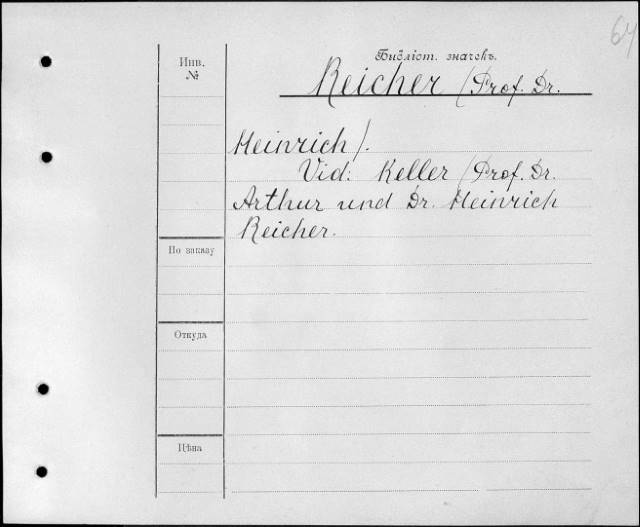 64
Библіот. значекъ.
Инв.
№
Reicher (Prof. Dr.
Heinrich).
Vid: Keller (Prof. Dr.
Arthur und Dr. Heinrich
Reicher.
По заказу
Откуда
Цѣна